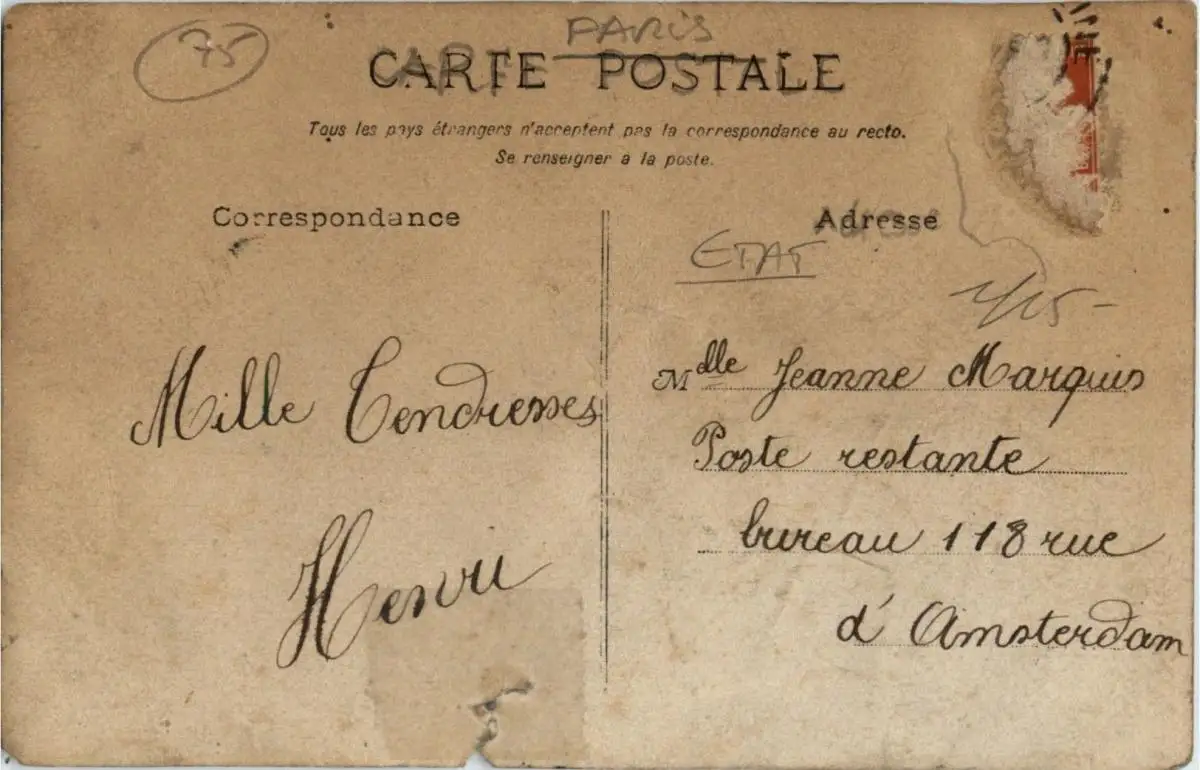 75
PARIS
CARTE POSTALE
Tous les pays étrangers n'acceptent pas la correspondance au recto.
Se renseigner à la poste.
Correspondance
Adresse
ETAT
Mille Tendresses
Henri
Mdlle Jeanne Marquis
Poste restante
bureau 118 rue
d'Amsterdam